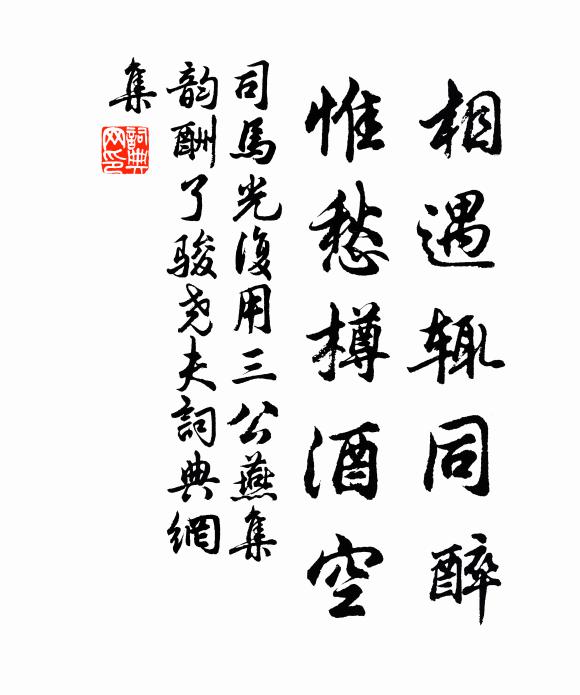 相遇辄同醉
惟愁樽酒空
司馬光復用三公燕集
韵酬了骏尧夫詞典網
集
詞典网印